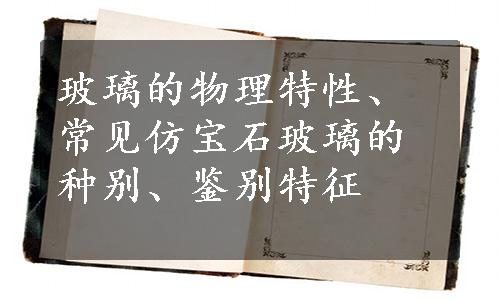 玻璃的物理特性、
常见仿宝石玻璃的
种别、鉴别特征